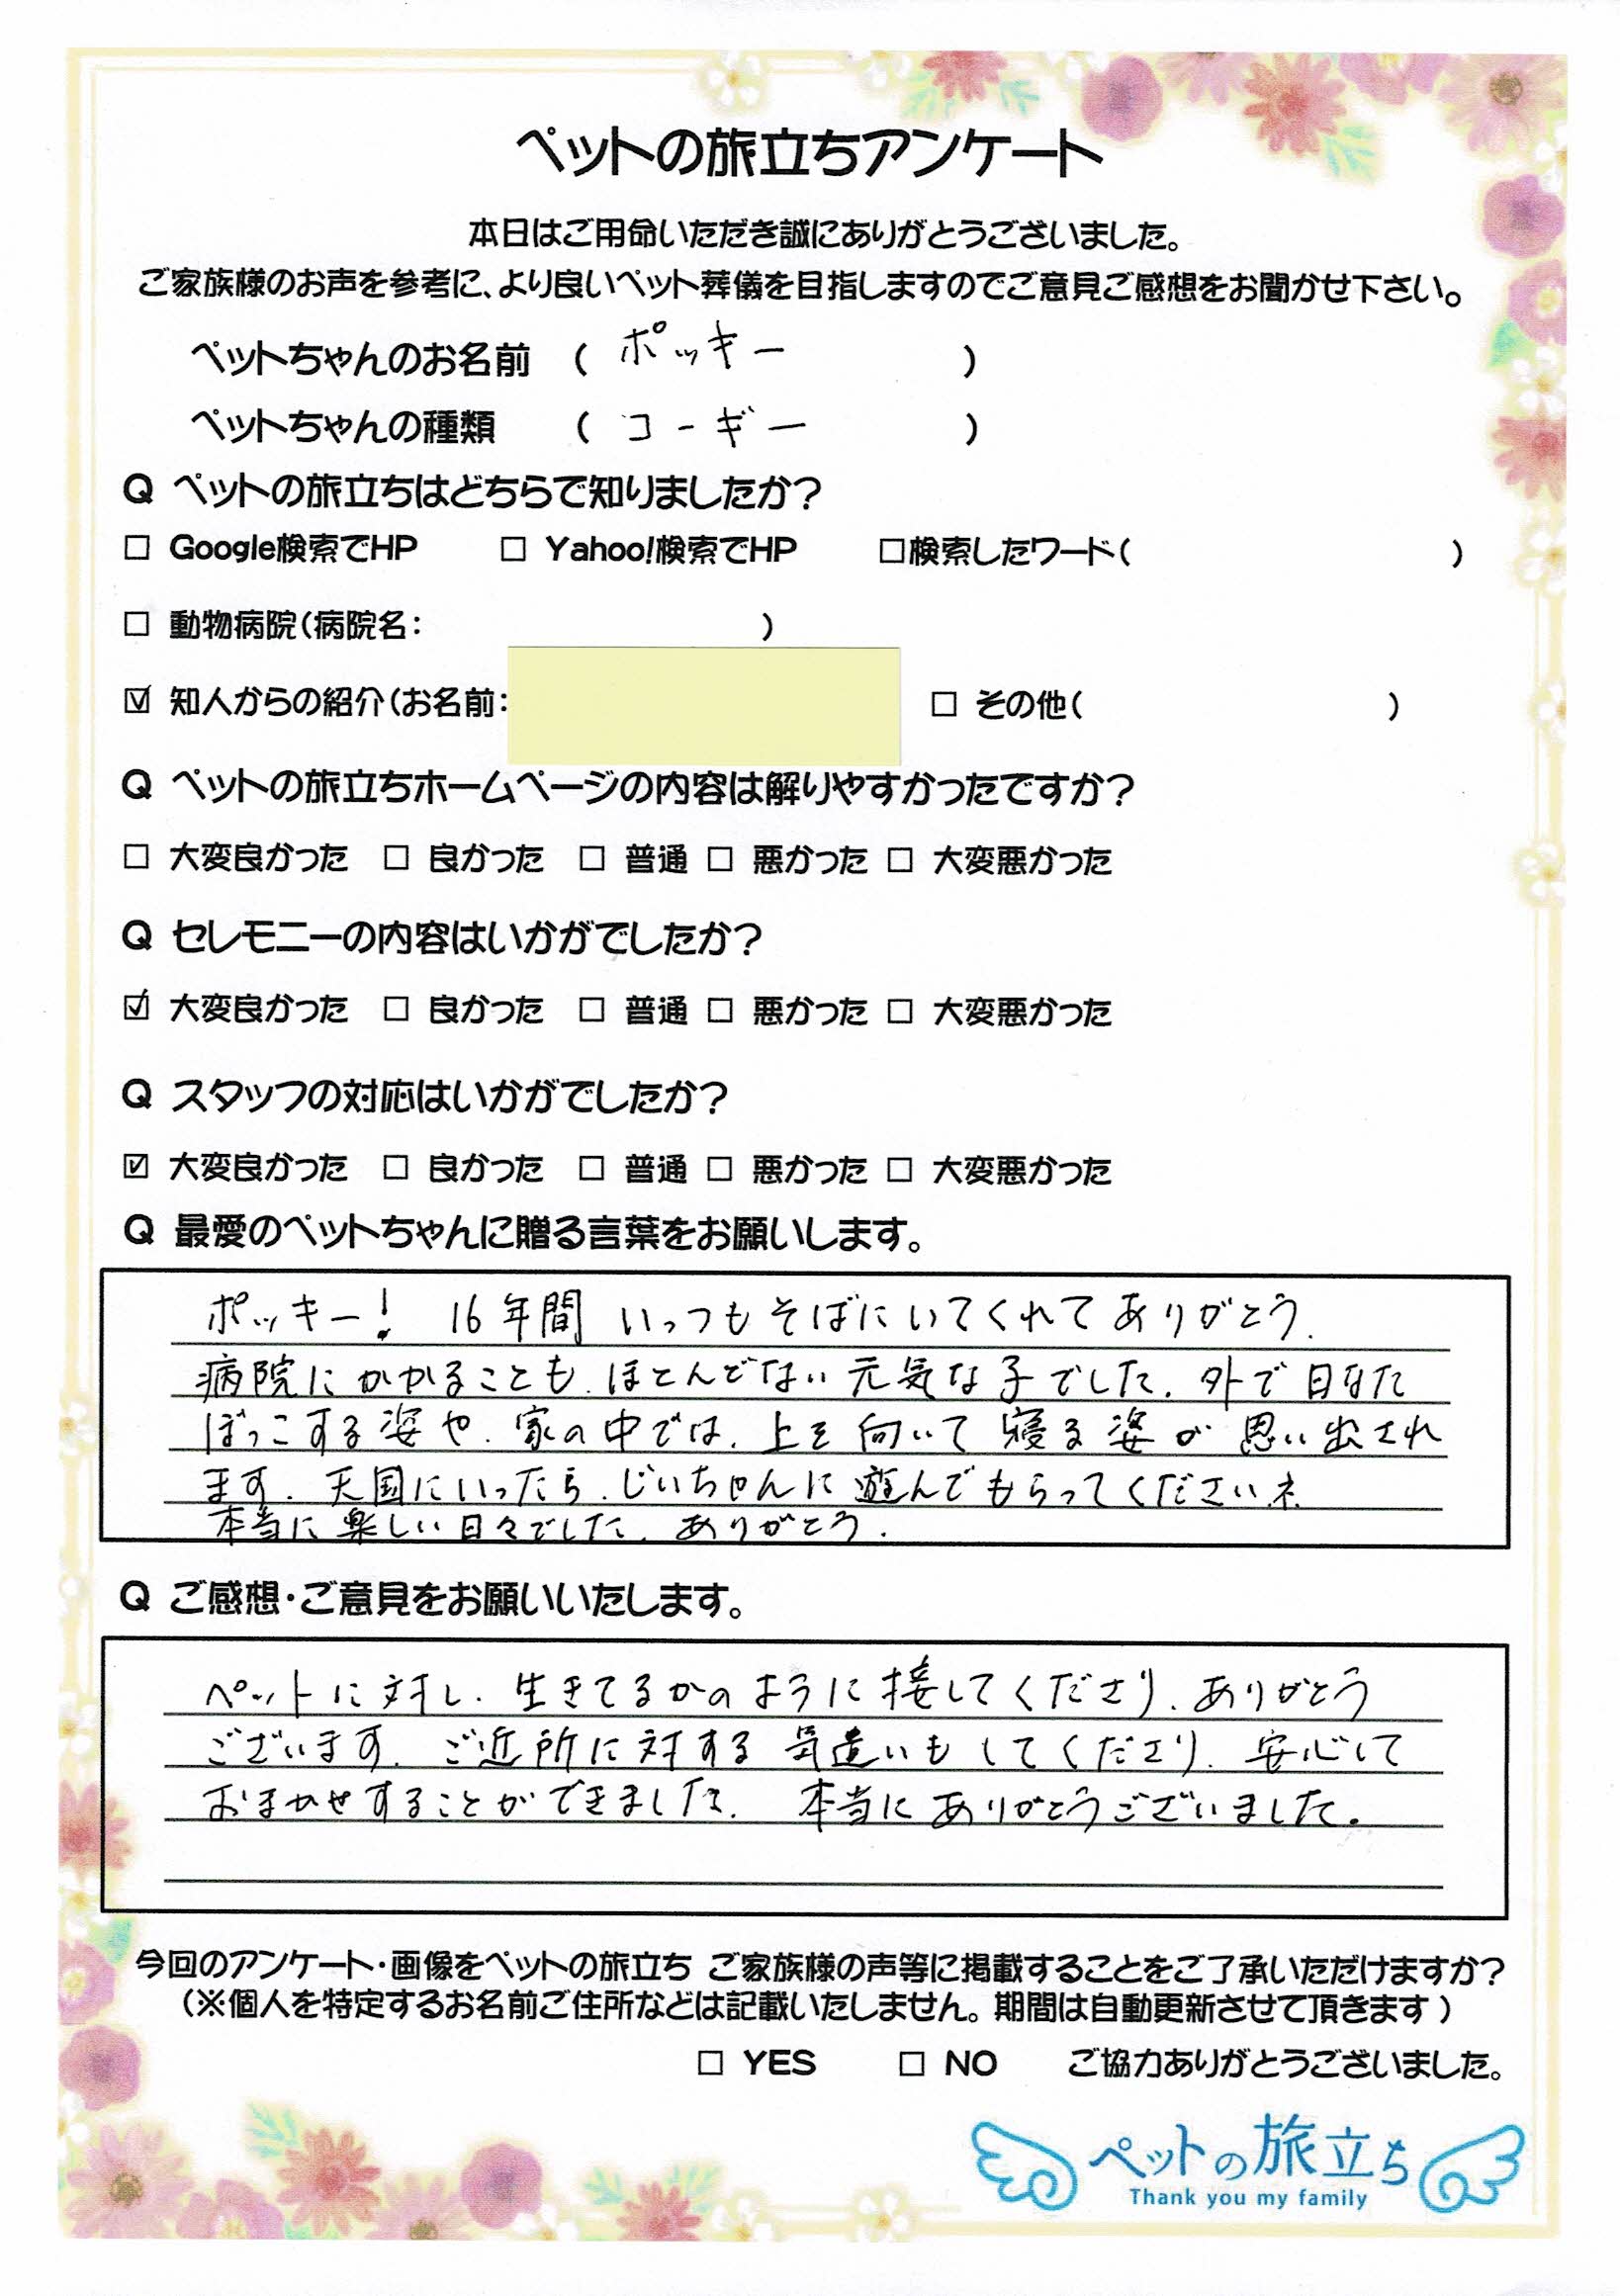 ペットの旅立ちアンケート
本日はご用命いただき誠にありがとうございました。
ご家族様のお声を参考に、より良いペット葬儀を目指しますのでご意見ご感想をお聞かせ下さい。
ペットちゃんのお名前 ( ポッキー )
ペットちゃんの種類 ( コーギー )
Q ペットの旅立ちはどちらで知りましたか?
☐ Google検索でHP ☐ Yahoo!検索でHP ☐検索したワード( )
☐ 動物病院(病院名: )
☑ 知人からの紹介(お名前: ☐ その他( )
Q ペットの旅立ちホームページの内容は解りやすかったですか?
☐ 大変良かった ☐ 良かった ☐ 普通 ☐ 悪かった ☐ 大変悪かった
Q セレモニーの内容はいかがでしたか?
☑ 大変良かった ☐ 良かった ☐ 普通 ☐ 悪かった ☐ 大変悪かった
Q スタッフの対応はいかがでしたか?
☑ 大変良かった ☐ 良かった ☐ 普通 ☐ 悪かった ☐ 大変悪かった
Q 最愛のペットちゃんに贈る言葉をお願いします。
ポッキー! 16年間 いつもそばにいてくれてありがとう.
病院にかかることも.ほとんどない元気な子でした.外で日なた
ぼっこする姿や.家の中では.上を向いて寝る姿が思い出され
ます.天国にいったら.じいちゃんに遊んでもらってくださいネ.
本当に楽しい日々でした.ありがとう.
Q ご感想・ご意見をお願いいたします。
ペットに対し.生きてるかのように接してくださり.ありがとう
ございます.ご近所に対する気遣いもしてくださり.安心して
おまかせすることができました. 本当にありがとうございました。
今回のアンケート・画像をペットの旅立ち ご家族様の声等に掲載することをご了承いただけますか?
(※個人を特定するお名前ご住所などは記載いたしません。期間は自動更新させて頂きます)
☐ YES ☐ NO ご協力ありがとうございました。
ペットの旅立ち
Thank you my family